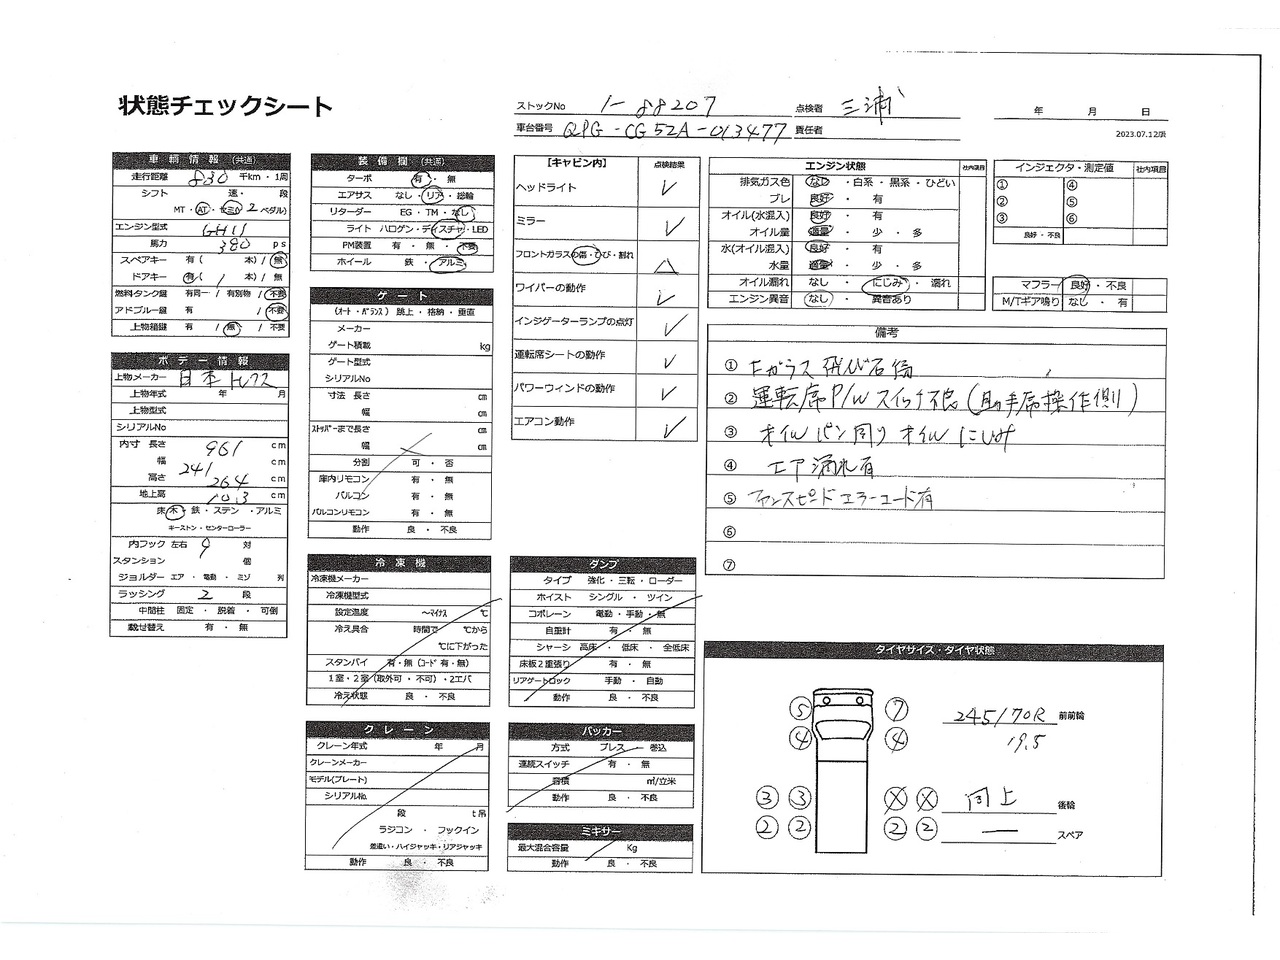 状態チェックシート
ストックNo 1-88207 点検者 三浦 年 月 日
車台番号 QPG-CG52A-013477 責任者 2023.07.12版
車輌情報 (共通)
走行距離 830 千km・1周
シフト 速・ 段
MT・AT・セミAT 2 ペダル)
エンジン型式 GH11
馬力 380 ps
スペアキー 有( 本) / 無
ドアキー 有( / 本) / 無
燃料タンク鍵 有同一 / 有別物 / 不要
アドブルー鍵 有 / 不要
上物箱鍵 有 / 無 / 不要
ボデー情報
上物メーカー 日本トレクス
上物年式 年 月
上物型式
シリアルNo
内寸 長さ 961 cm
幅 241 cm
高さ 264 cm
地上高 103 cm
床 木・鉄・ステン・アルミ
キーストン・センターローラー
内フック 左右 9 対
スタンション 個
ジョルダー エア・電動・ミゾ 列
ラッシング 2 段
中間柱 固定・脱着・可倒
載せ替え 有・無
装備欄 (共通)
ターボ 有・無
エアサス なし・リア・総輪
リターダー EG・TM・なし
ライト ハロゲン・ディスチャ・LED
PM装置 有・無・不要
ホイール 鉄・アルミ
ゲート
(オート・バランス) 跳上・格納・垂直
メーカー
ゲート積載 kg
ゲート型式
シリアルNo
寸法 長さ cm
幅 cm
ストッパーまで長さ cm
幅 cm
分割 可・否
庫内リモコン 有・無
バルコン 有・無
バルコンリモコン 有・無
動作 良・不良
冷凍機
冷凍機メーカー
冷凍機型式
設定温度 ～マイナス ℃
冷え具合 時間で ℃から
℃に下がった
スタンバイ 有・無 (コード 有・無)
1室・2室 (取外可・不可)・2エバ
冷え状態 良・不良
クレーン
クレーン年式 年 月
クレーンメーカー
モデル(プレート)
シリアルNo.
段 t吊
ラジコン・フックイン
差違い・ハイジャッキ・リアジャッキ
動作 良・不良
【キャビン内】 点検結果
ヘッドライト ✓
ミラー ✓
フロントガラスの傷・ひび・割れ △
ワイパーの動作 ✓
インジゲーターランプの点灯 ✓
運転席シートの動作 ✓
パワーウィンドの動作 ✓
エアコン動作 ✓
ダンプ
タイプ 強化・三転・ローダー
ホイスト シングル・ツイン
コボレーン 電動・手動・無
自重計 有・無
シャーシ 高床・低床・全低床
床板2重張り 有・無
リアゲートロック 手動・自動
動作 良・不良
パッカー
方式 プレス・巻込
連続スイッチ 有・無
容積 ㎥/立米
動作 良・不良
ミキサー
最大混合容量 Kg
動作 良・不良
エンジン状態 社内項目
排気ガス色 なし・白系・黒系・ひどい
ブレ 良好・有
オイル(水混入) 良好・有
オイル量 適量・少・多
水(オイル混入) 良好・有
水量 適量・少・多
オイル漏れ なし・にじみ・漏れ
エンジン異音 なし・異音あり
インジェクタ・測定値 社内項目
① ④
② ⑤
③ ⑥
良好・不良
マフラー 良好・不良
M/Tギア鳴り なし・有
備考
① Fガラス飛び石傷
② 運転席P/Wスイッチ不良(助手席操作側)
③ オイルパン周りオイルにじみ
④ エア漏れ有
⑤ ファンスピードエラーコード有
⑥
⑦
タイヤサイズ・タイヤ状態
⑤ ⑦ 245/70R 前前輪
④ ④ 19.5
③ ③ Ⓧ Ⓧ 同上 後輪
② ② ② ② ー スペア